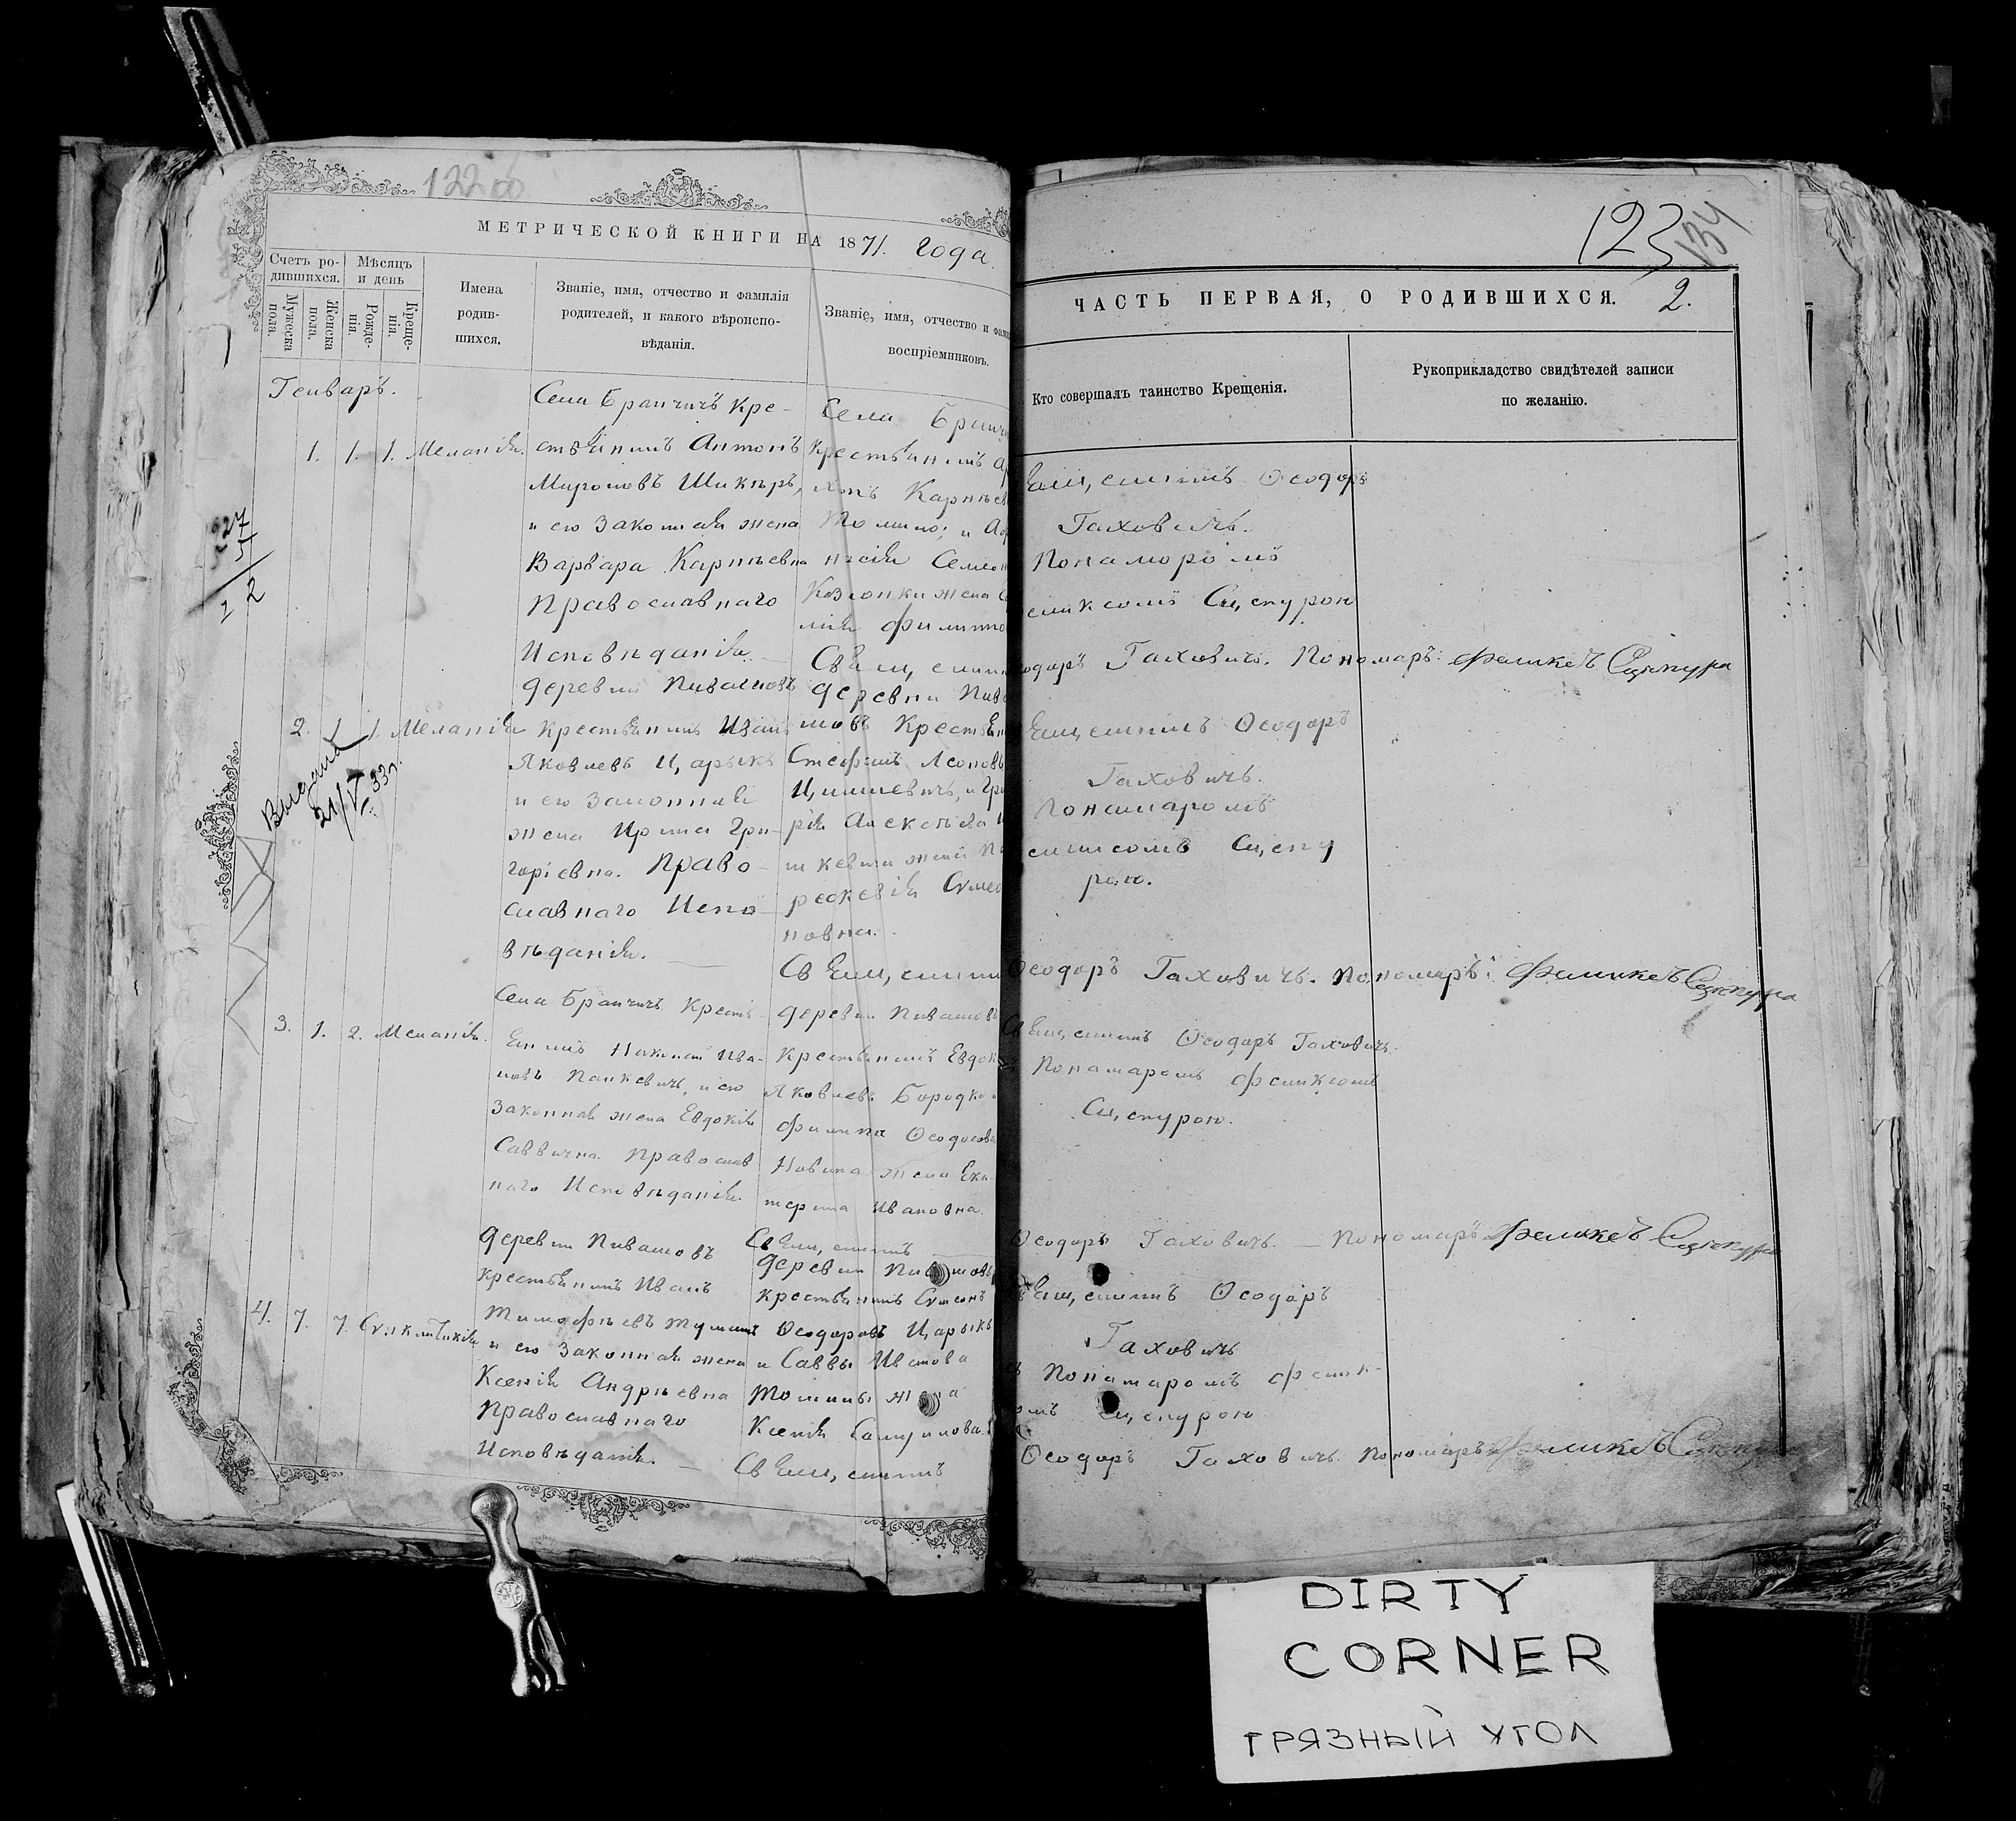 122 об
МЕТРИЧЕСКОЙ КНИГИ НА 1871. года.
Счетъ ро-
дившихся.
Мѣсяцъ
и день
Мужеска
пола.
Женска
пола.
Рожде-
нія.
Креще-
нія.
Имена
родив-
шихся.
Званіе, имя, отчество и фамилія
родителей, и какого вѣроиспо-
вѣданія.
Званіе, имя, отчество и фами
воспріемниковъ.
Генваръ.
1. 1. 1. Меланія.
Села Бранчичъ кре-
стьянинъ Антонъ
Мироновъ Шикѣръ,
и его законная жена
Варвара Карпѣевна
Православнаго
Исповѣданія.
Села Бранчи
Крестьянинъ
Карпѣев
и
Семен
жена
Филиппо
Свящ, енни
2. 1. 1. Меланія
Выдана
21/V 33г.
деревни Пивашовъ
крестьянинъ Иванъ
Яковлевъ Царыкъ
и его законная
жена Ирина Гри-
горіевна. Право-
славнаго Испо-
вѣданія.
деревни Пив
шовъ Крестьян
Стефанъ Леоновъ
жена
новна.
Свящ, енни
3. 1. 2. Меланія.
Села Бранчичъ Кресть-
янинъ Ива-
новъ Панкевичъ, и его
Законная жена Евдокія
Саввична. Православ
наго Исповѣданія.
деревни Пивашовъ
Крестьянинъ Евдок
Яковлевъ Бородко
Филипа Ѳеодосова
Новика жена Ека-
терина Ивановна.
Свящ, енникъ
4. 7. 7. Сѵнклитикія
деревни Пивашовъ
крестьянинъ Иванъ
Тимофѣевъ
и его законная жена
Ксенія Андрѣевна
Православнаго
Исповѣданія.
деревни Пивашовъ
крестьянинъ Сѵмеонъ
Ѳеодоровъ Царыкъ
и Саввы Иванова
Томины жена
Ксенія
Свящ, енникъ
123
134
ЧАСТЬ ПЕРВАЯ, О РОДИВШИХСЯ. 2.
Кто совершалъ таинство Крещенія.
Рукоприкладство свидѣтелей записи
по желанію.
вящ, енникъ Ѳеодоръ
Гаховичъ.
Пономоромъ
еликсомъ Сцепурою
одоръ Гаховичъ. Пономаръ: Феликсъ Сцепура
вященникъ Ѳеодоръ
Гаховичъ.
Пономаромъ
еликсомъ Сцепу
рою.
Ѳеодоръ Гаховичъ. Пономаръ: Феликсъ Сцепура
Свящ, енникъ Ѳеодоръ Гаховичъ.
Пономаромъ Феликсомъ
Сцепурою.
Ѳеодоръ Гаховичъ. — Пономаръ Феликсъ Сцепура
вящ, енникъ Ѳеодоръ
Гаховичъ
Пономаромъ Феликс-
омъ Сцепурою
Ѳеодоръ Гаховичъ. Пономаръ Феликсъ Сцепура
DIRTY
CORNER
ГРЯЗНЫЙ УГОЛ